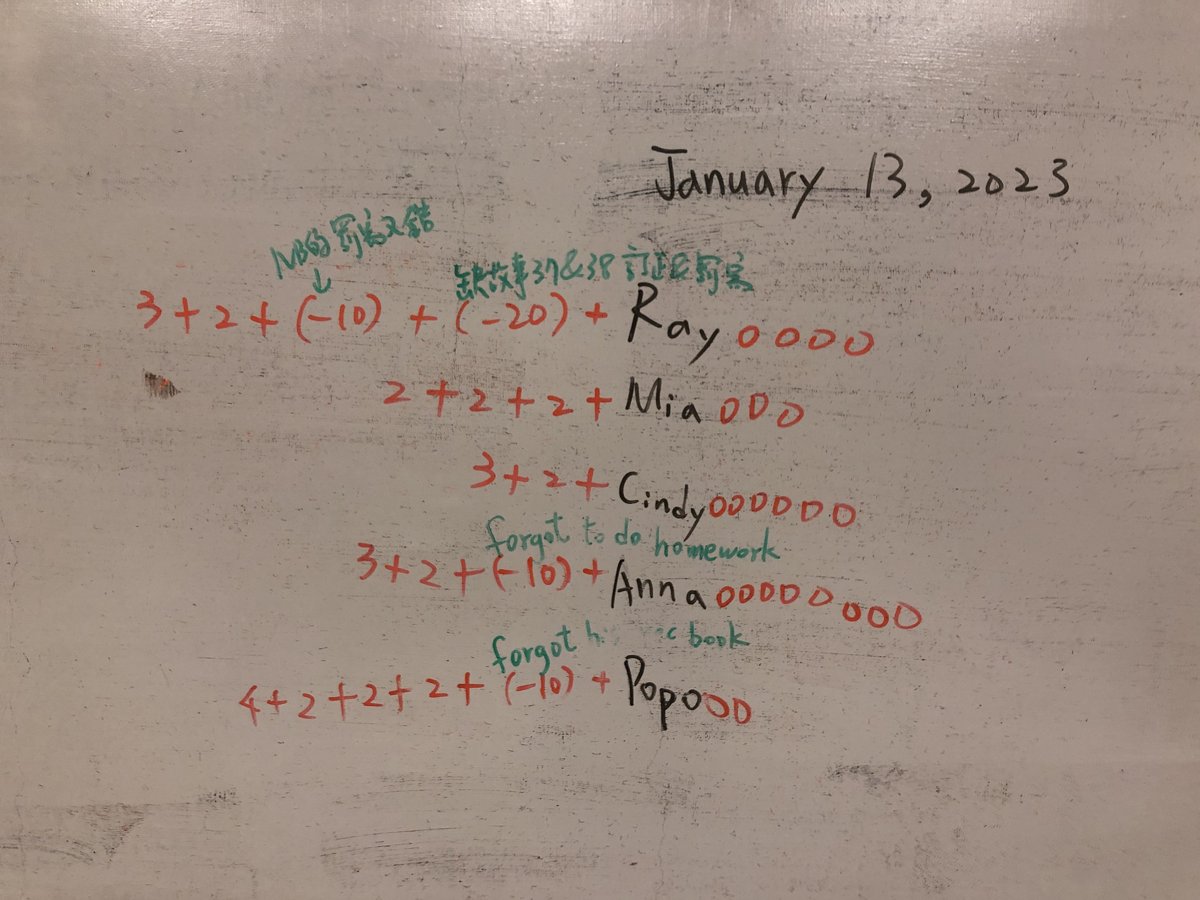 January 13, 2023
NB的罰寫又錯
↓
缺故事37&38訂正&罰寫
3+2+(-10)+(-20)+Ray 0000
2+2+2+Mia 000
3+2+Cindy 000000
forgot to do homework
3+2+(-10)+Anna 00000000
forgot book
4+2+2+2+(-10)+Popo 00